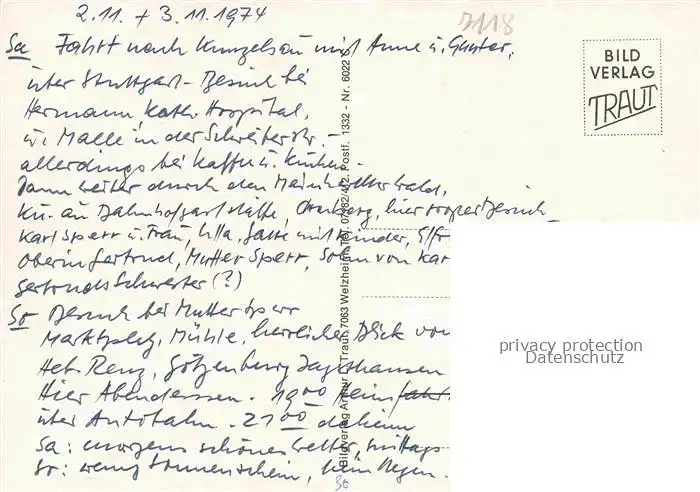 2.11. + 3.11.1974
7118
Sa Fahrt nach Künzelsau mit Anne u. Gunter,
über Stuttgart - Besuch bei
Hermann, Kath. Hospital,
u. Malle in der Schreiberstr. -
allerdings bei Kaffee u. Kuchen -
Dann weiter durch den Mainhardter Wald,
Kü. an Bahnhofgaststätte, hier großer Besuch
Karl Sperr u. Frau, Ulla, Gatte mit Kinder, Elfr
Oberin Gertrud, Mutter Sperr, Sohn von Kar
Gertruds Schwester (?)
So Besuch bei Mutter Sperr
Marktplatz, Mühle, herrlicher Blick von
Heb. Renz, Götzenburg Jagsthausen
Hier Abendessen. 19 00 Heimfahrt
über Autobahn. 21 00 daheim
Sa: morgens schönes Wetter, mittags
So: wenig Sonnenschein, kein Regen.
30
BILD
VERLAG
TRAUT
Bildverlag Arthur F. Traut, 7063 Welzheim, Tel. 07182/472, Postf. 1332 - Nr. 6022
privacy protection
Datenschutz